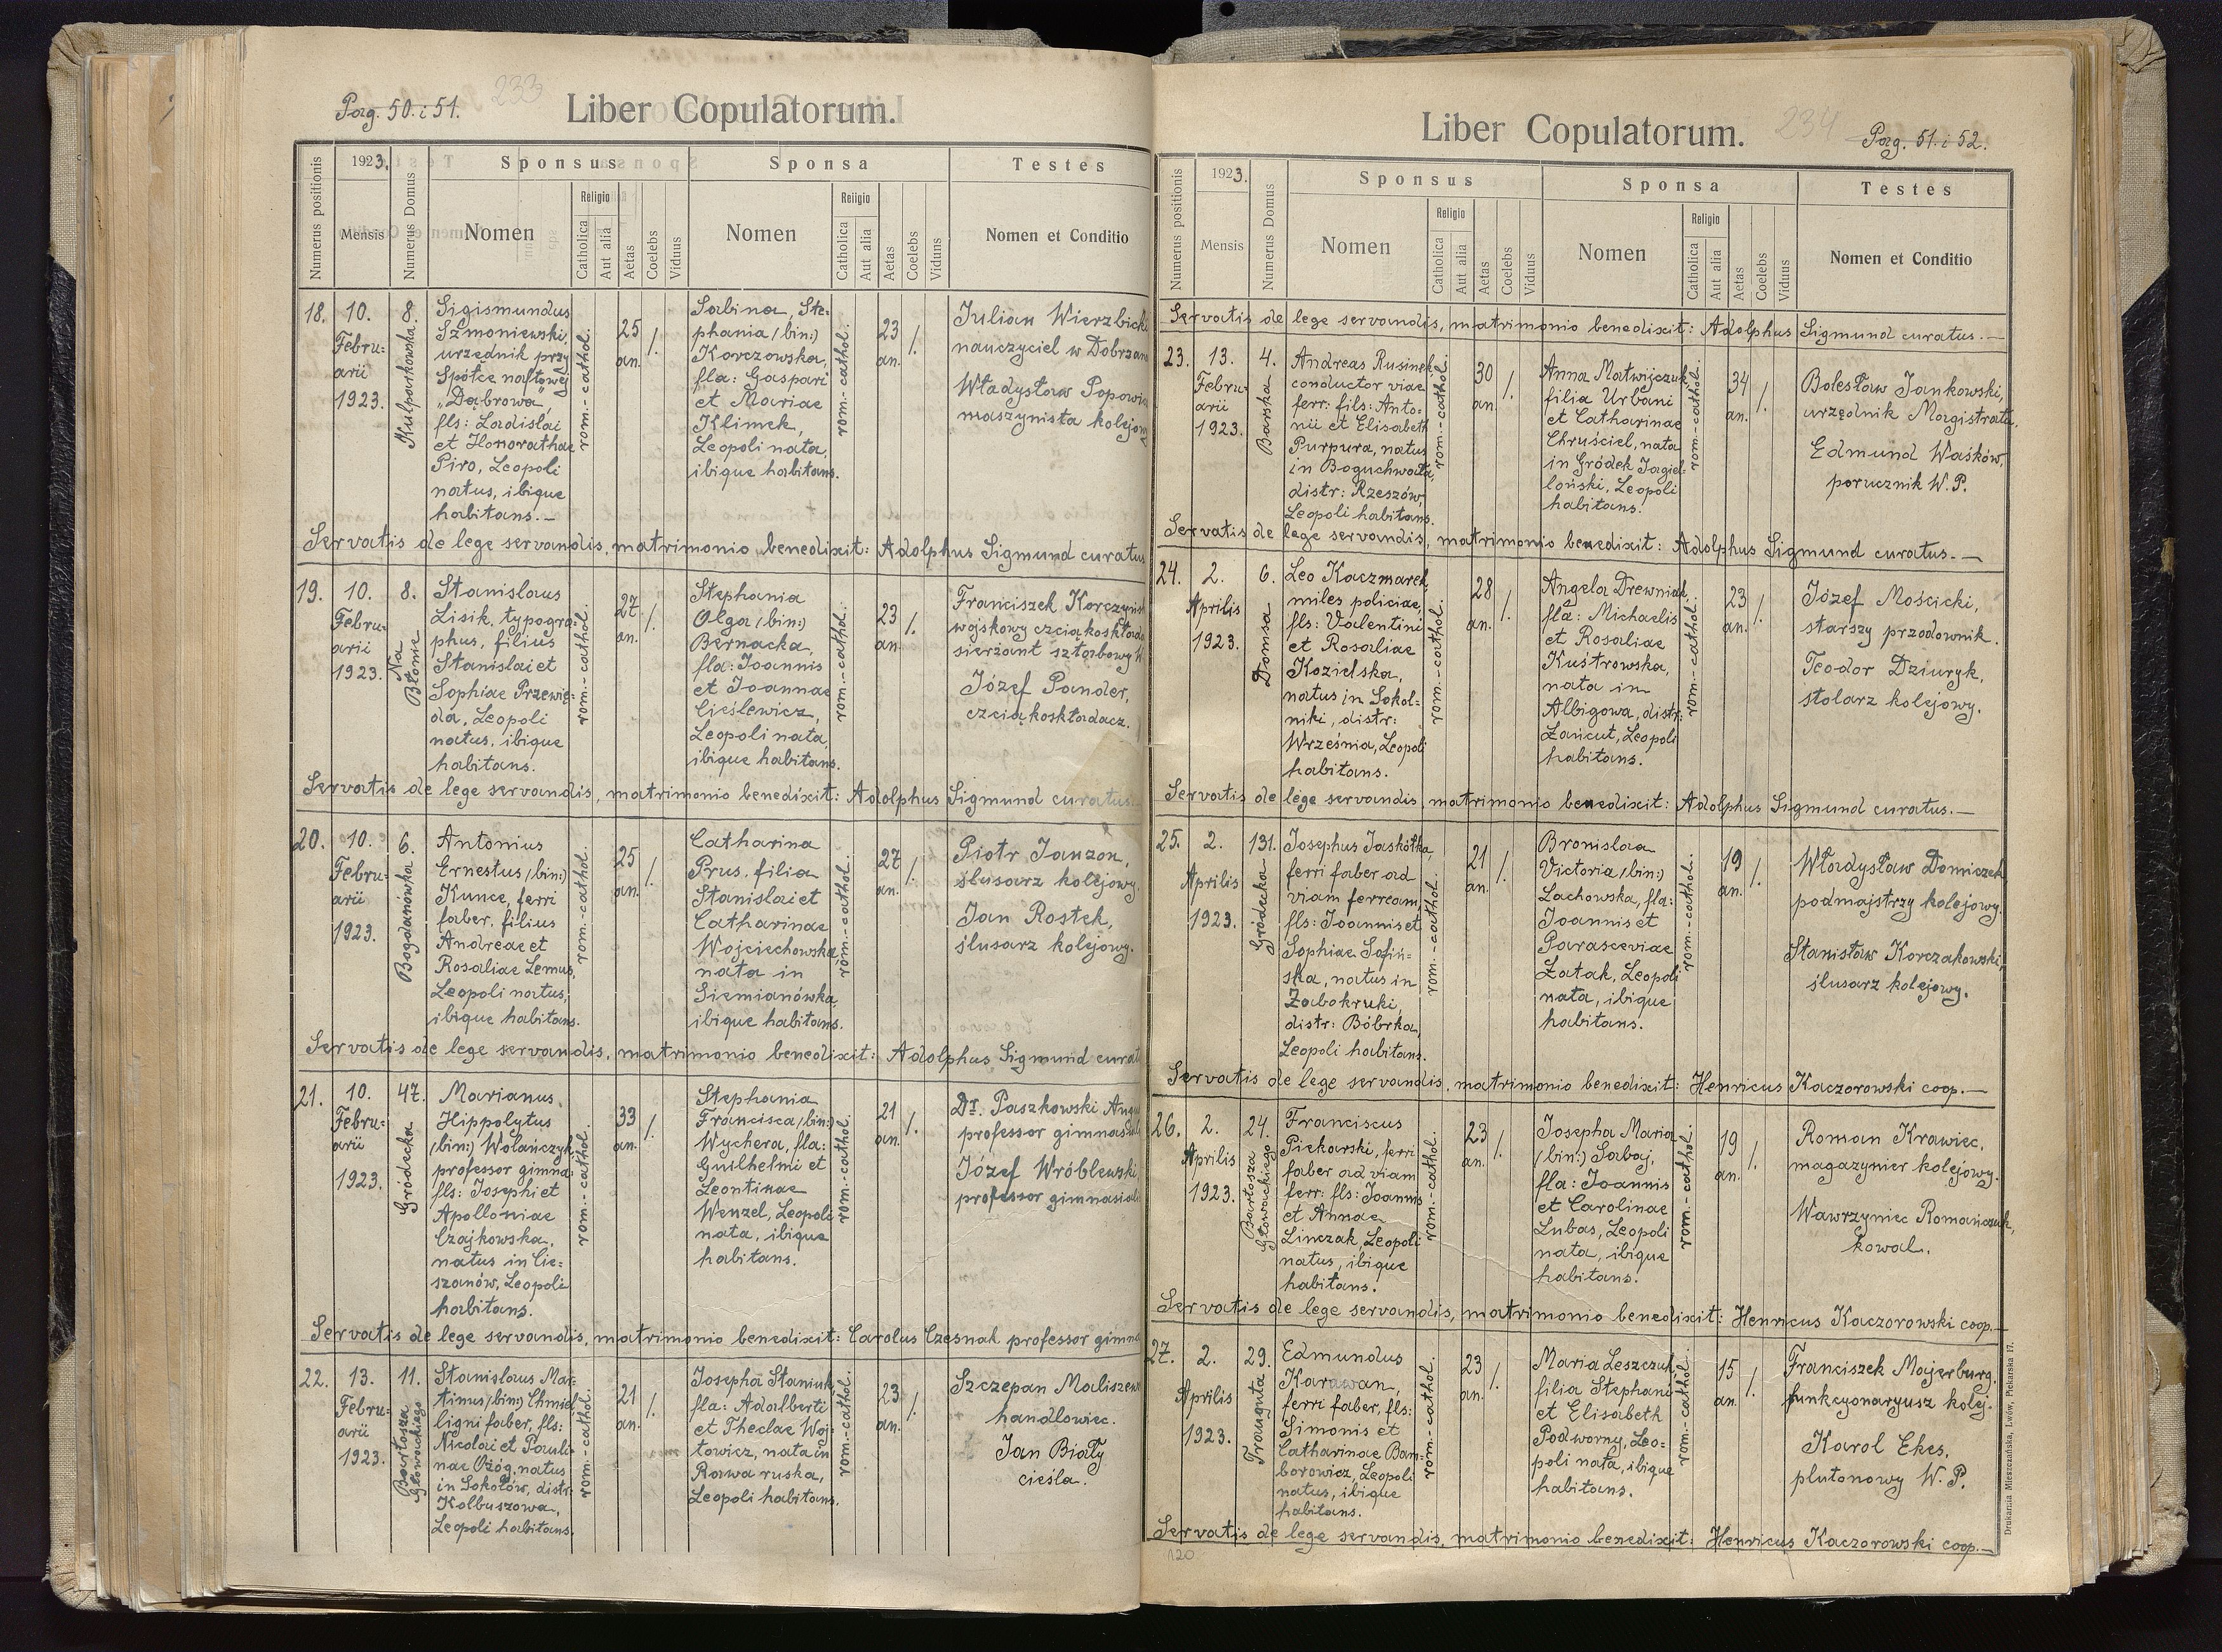 Pag. 50. i 51.
233
Liber Copulatorum.
Numerus positionis
1923.
Mensis
Numerus Domus
Sponsus
Nomen
Religio
Catholica
Aut alia
Aetas
Coelebs
Viduus
Sponsa
Nomen
Religio
Catholica
Aut alia
Aetas
Coelebs
Viduus
Testes
Nomen et Conditio
18.
10.
Febru=
arii
1923.
8.
Kulparkowska
Sigismundus
Szmoniewski,
urzędnik przy
Spółce naftowej
"Dąbrowa",
fls: Ladislai
et Honorathae
Piro, Leopoli
natus, ibique
habitans.—
rom.-cathol.
25
an.
/.
Sabina, Ste=
phania (bin:)
Korczowska,
fla: Gaspari
et Mariae
Klimek,
Leopoli nata,
ibique habitans.
rom.-cathol.
23
an.
/.
Julian Wierzbick
nauczyciel w Dobrzan
Władysław Popowic
maszynista kolejowy
Servatis de lege servandis, matrimonio benedixit: Adolphus Sigmund curatus
19.
10.
Febru=
arii
1923.
8.
Na
Błonie
Stanislaus
Lisik, typogra=
phus, filius
Stanislai et
Sophiae Przewię=
da, Leopoli
natus, ibique
habitans.
rom.-cathol.
27
an.
/.
Stephania
Olga (bin:)
Bernacka,
fla: Joannis
et Joannae
Cieślewicz,
Leopoli nata,
ibique habitans.
rom.-cathol.
23
an.
/.
Franciszek Korczyńsk
wojskowy czcionkoskłada
sierżant sztabowy W
Józef Pander,
czcionkoskładacz.
Servatis de lege servandis, matrimonio benedixit: Adolphus Sigmund curatus.
20.
10.
Febru=
arii
1923.
6.
Bogdanówka
Antonius
Ernestus (bin:)
Kunce, ferri
faber, filius
Andreae et
Rosaliae Lemus,
Leopoli natus,
ibique habitans.
rom.-cathol.
25
an.
/.
Catharina
Prus, filia
Stanislai et
Catharinae
Wojciechowska,
nata in
Siemianówka,
ibique habitans.
rom.-cathol.
27
an.
/.
Piotr Janzon,
ślusarz kolejowy.
Jan Rostek,
ślusarz kolejowy.
Servatis de lege servandis, matrimonio benedixit: Adolphus Sigmund curat
21.
10.
Febru=
arii
1923.
47.
Gródecka
Marianus,
Hippolytus
(bin:) Wolańczyk
professor gimna=
fls: Josephi et
Apolloniae
Czajkowska,
natus in Cie=
szanów, Leopoli
habitans.
rom.-cathol.
33
an.
/.
Stephania
Francisca (bin:)
Wychera, fla:
Guilhelmi et
Leontinae
Wenzel, Leopoli
nata, ibique
habitans.
rom.-cathol.
21
an.
/.
Dr. Paszkowski Aug
professor gimnasial
Józef Wróblewski,
professor gimnasial
Servatis de lege servandis, matrimonio benedixit: Carolus Czesnak professor gimna
22.
13.
Febru=
arii
1923.
11.
Bartosza
Głowackiego
Stanislaus Mar=
tinus (bin:) Chmiel
ligni faber, fls:
Nicolai et Pauli=
nae Ożóg, natus
in Sokołów, distr:
Kolbuszowa,
Leopoli habitans.
rom.-cathol.
21
an.
/.
Josepha Staniuk,
fla: Adalberti
et Theclae Woj=
towicz, nata in
Rawa ruska,
Leopoli habitans.
rom.-cathol.
23
an.
/.
Szczepan Maliszew
handlowiec.
Jan Biały
cieśla.
Liber Copulatorum.
234
Pag. 51. i 52.
Numerus positionis
1923.
Mensis
Numerus Domus
Sponsus
Nomen
Religio
Catholica
Aut alia
Aetas
Coelebs
Viduus
Sponsa
Nomen
Religio
Catholica
Aut alia
Aetas
Coelebs
Viduus
Testes
Nomen et Conditio
Servatis de lege servandis, matrimonio benedixit: Adolphus Sigmund curatus.—
23.
13.
Febru=
arii
1923.
4.
Barska
Andreas Rusinek,
conductor viae
ferr: fils: Anto=
nii et Elisabeth
Purpura, natus
in Boguchwała,
distr: Rzeszów,
Leopoli habitans.
rom.-cathol.
30
an.
/.
Anna Matwijczuk,
filia Urbani
et Catharinae
Chruściel, nata
in Gródek Jagiel=
loński, Leopoli
habitans.
rom.-cathol.
34
an.
/.
Bolesław Jankowski,
urzędnik Magistratu.
Edmund Waśków,
porucznik W. P.
Servatis de lege servandis, matrimonio benedixit: Adolphus Sigmund curatus.—
24.
2.
Aprilis
1923.
6.
Domsa
Leo Kaczmarek,
miles policiae,
fls: Valentini
et Rosaliae
Kozielska,
natus in Sokol=
niki, distr:
Września, Leopoli
habitans.
rom.-cathol.
28
an.
/.
Angela Drewniak,
fla: Michaelis
et Rosaliae
Kuśtrowska,
nata in
Albigowa, distr:
Łańcut, Leopoli
habitans.
rom.-cathol.
23
an.
/.
Józef Mościcki,
starszy przodownik.
Teodor Dziuryk,
stolarz kolejowy.
Servatis de lege servandis, matrimonio benedixit: Adolphus Sigmund curatus.—
25.
2.
Aprilis
1923.
131.
Gródecka
Josephus Jaskółka,
ferri faber ad
viam ferream,
fls: Joannis et
Sophiae Safiń=
ska, natus in
Żabokruki,
distr: Bóbrka,
Leopoli habitans.
rom.-cathol.
21
an.
/.
Bronislaa
Victoria (bin:)
Lachowska, fla:
Joannis et
Parasceviae
Łatak, Leopoli
nata, ibique
habitans.
rom.-cathol.
19
an.
/.
Władysław Domiczek
podmajstrzy kolejowy.
Stanisław Korczakowski,
ślusarz kolejowy.
Servatis de lege servandis, matrimonio benedixit: Henricus Kaczorowski coop.—
26.
2.
Aprilis
1923.
24.
Bartosza
Głowackiego
Franciscus
Piekarski, ferri
faber ad viam
ferr: fls: Joannis
et Annae
Linczak, Leopoli
natus, ibique
habitans.
rom.-cathol.
23
an.
/.
Josepha Maria
(bin:) Sabaj,
fla: Joannis
et Carolinae
Lubas, Leopoli
nata, ibique
habitans.
rom.-cathol.
19
an.
/.
Roman Krawiec,
magazynier kolejowy.
Wawrzyniec Romańczuk,
kowal.
Servatis de lege servandis, matrimonio benedixit: Henricus Kaczorowski coop.—
27.
2.
Aprilis
1923.
29.
Traugutta
Edmundus
Karawan,
ferri faber, fls:
Simonis et
Catharinae Bam=
borowicz, Leopoli
natus, ibique
habitans.
rom.-cathol.
23
an.
/.
Maria Leszczuk,
filia Stephani
et Elisabeth
Podworny, Leo=
poli nata, ibique
habitans.
rom.-cathol.
15
an.
/.
Franciszek Majerburg,
funkcyonaryusz kolej.
Karol Ekes,
plutonowy W. P.
Servatis de lege servandis, matrimonio benedixit: Henricus Kaczorowski coop.—
120
Drukarnia Mieszczańska, Lwów, Piekarska 17.